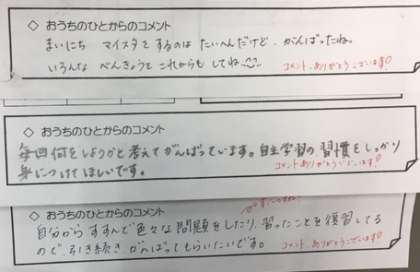 ◇ おうちのひとからのコメント
まいにち マイスタをするのは たいへんだけど、がんばったね。
いろんな べんきょうを これからも してね
コメント、ありがとうございます!
◇ おうちのひとからのコメント
毎回何をしようかと考えてがんばっています。自主学習の習慣をしっかり
身につけてほしいです。
コメントありがとうございます!
◇ おうちのひとからのコメント
自分からすすんで色々な問題をしたり、習ったことを復習してる
ので、引き続きがんばってもらいたいです。
コメント、ありがとうございます!